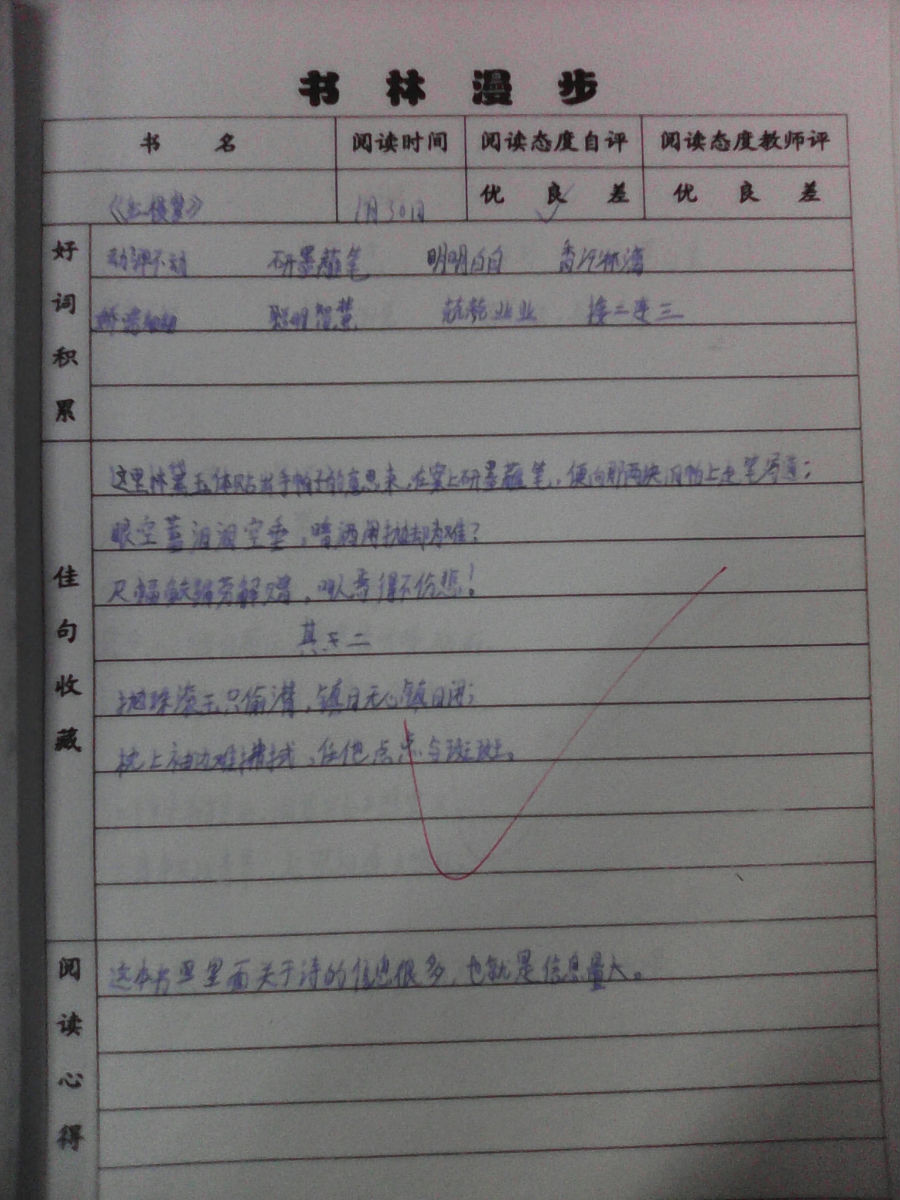 书林漫步
书名 阅读时间 阅读态度自评 阅读态度教师评
《红楼梦》 1月30日 优 良 差 优 良 差
好词积累
研墨蘸笔 明明白白
聪明智慧 兢兢业业 接二连三
佳句收藏
这里林黛玉体贴出手帕子的意思来,在案上研墨蘸笔,便向那两块旧帕上走笔写道:
眼空蓄泪泪空垂,暗洒闲抛却为谁?
尺幅鲛绡劳解赠,叫人焉得不伤悲!
其二
抛珠滚玉只偷潸,镇日无心镇日闲;
枕上袖边难拂拭,任他点点与斑斑。
阅读心得
这本书里里面关于诗的信息很多,也就是信息量大。